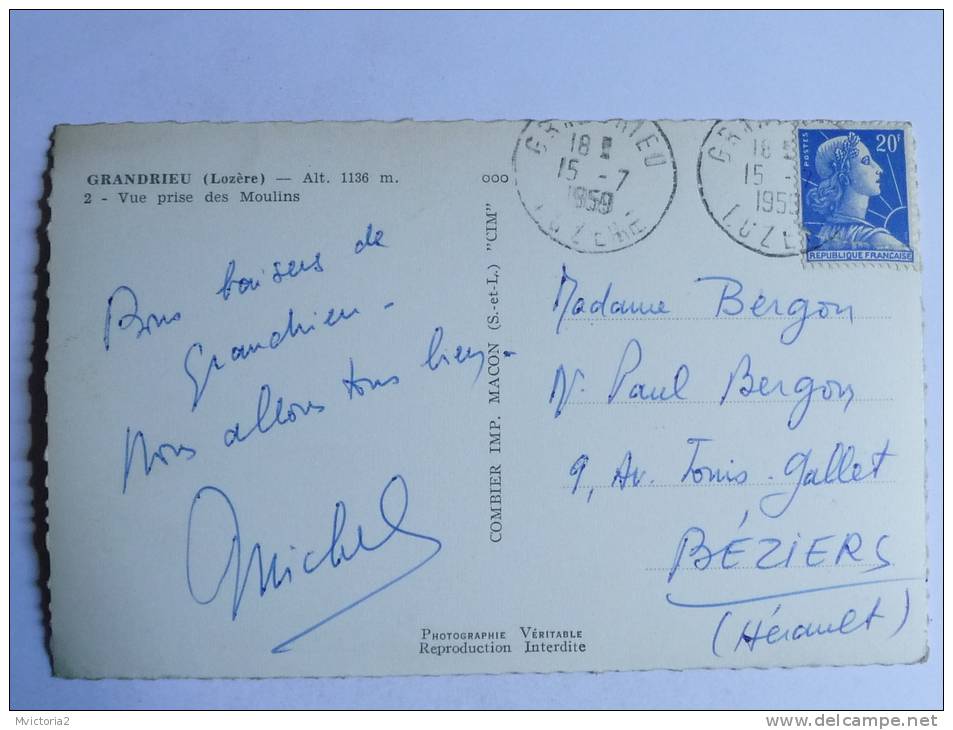 GRANDRIEU (Lozère) — Alt. 1136 m.
2 - Vue prise des Moulins
Bons baisers de
Grandrieu -
Nous allons tous bien -
Michel
COMBIER IMP. MACON (S.-et-L.) "CIM"
ooo
GRANDRIEU
18
15 -7
1959
LOZERE
18
15
1959
LOZE
POSTES
20F
REPUBLIQUE FRANCAISE
Madame Bergon
Paul Bergon
9, Av. Gallet
BÉZIERS
(Hérault)
PHOTOGRAPHIE VÉRITABLE
Reproduction Interdite
Mvictoria2
delcampe.net